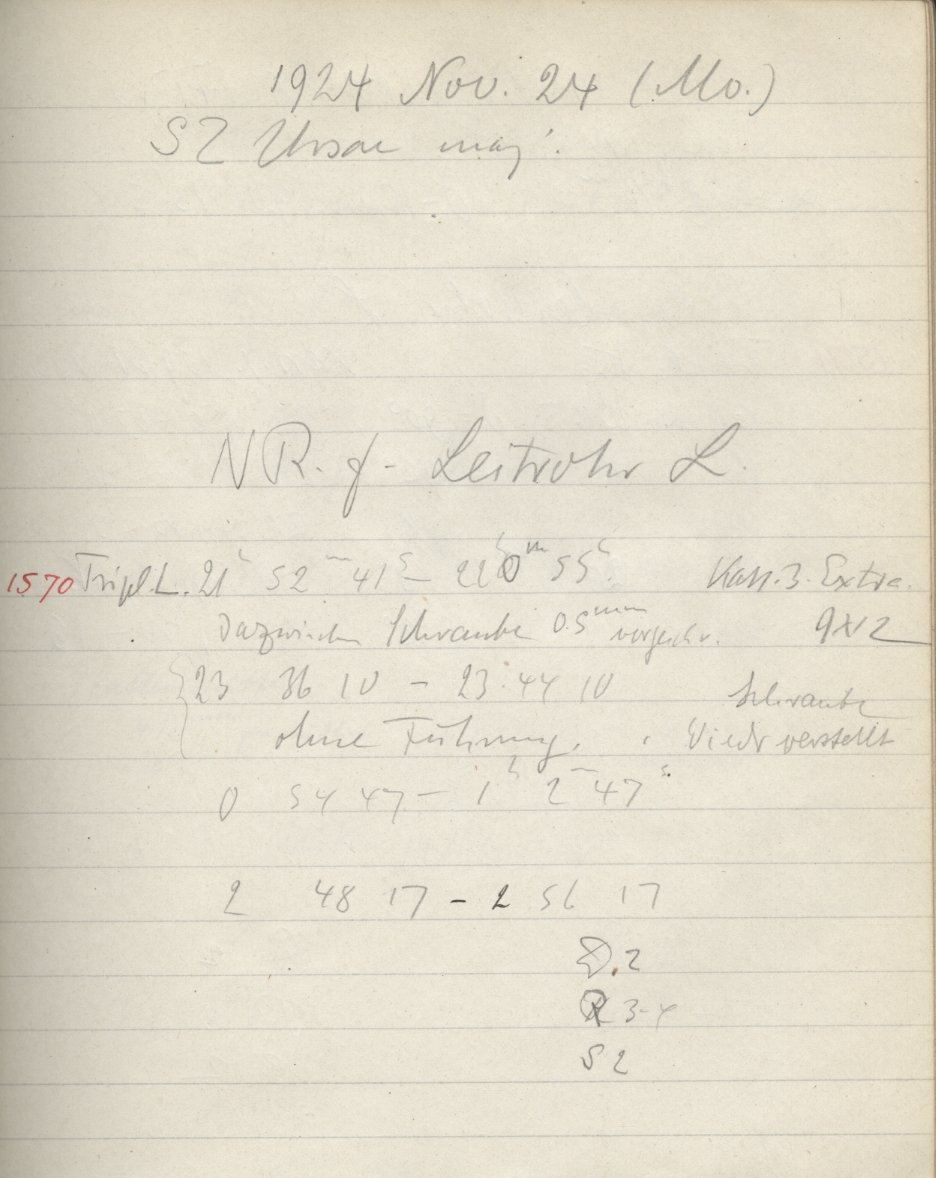 1924 Nov. 24 (Mo.)
SZ Ursae maj.
NR. f. Leitrohr L.
1570 Tripl. L. 21h 52m 41s – 22h 0m 55s. Kass. 3. Extra.
Dazwischen Schraube 0.5mm vorgeschr. 9x12
23 36 10 – 23 44 10 Schraube
ohne Führung. Wiedr verstellt
0 54 47 – 1h 2m 47s
2 48 17 – 2 56 17
D. 2
R 3-4
S 2